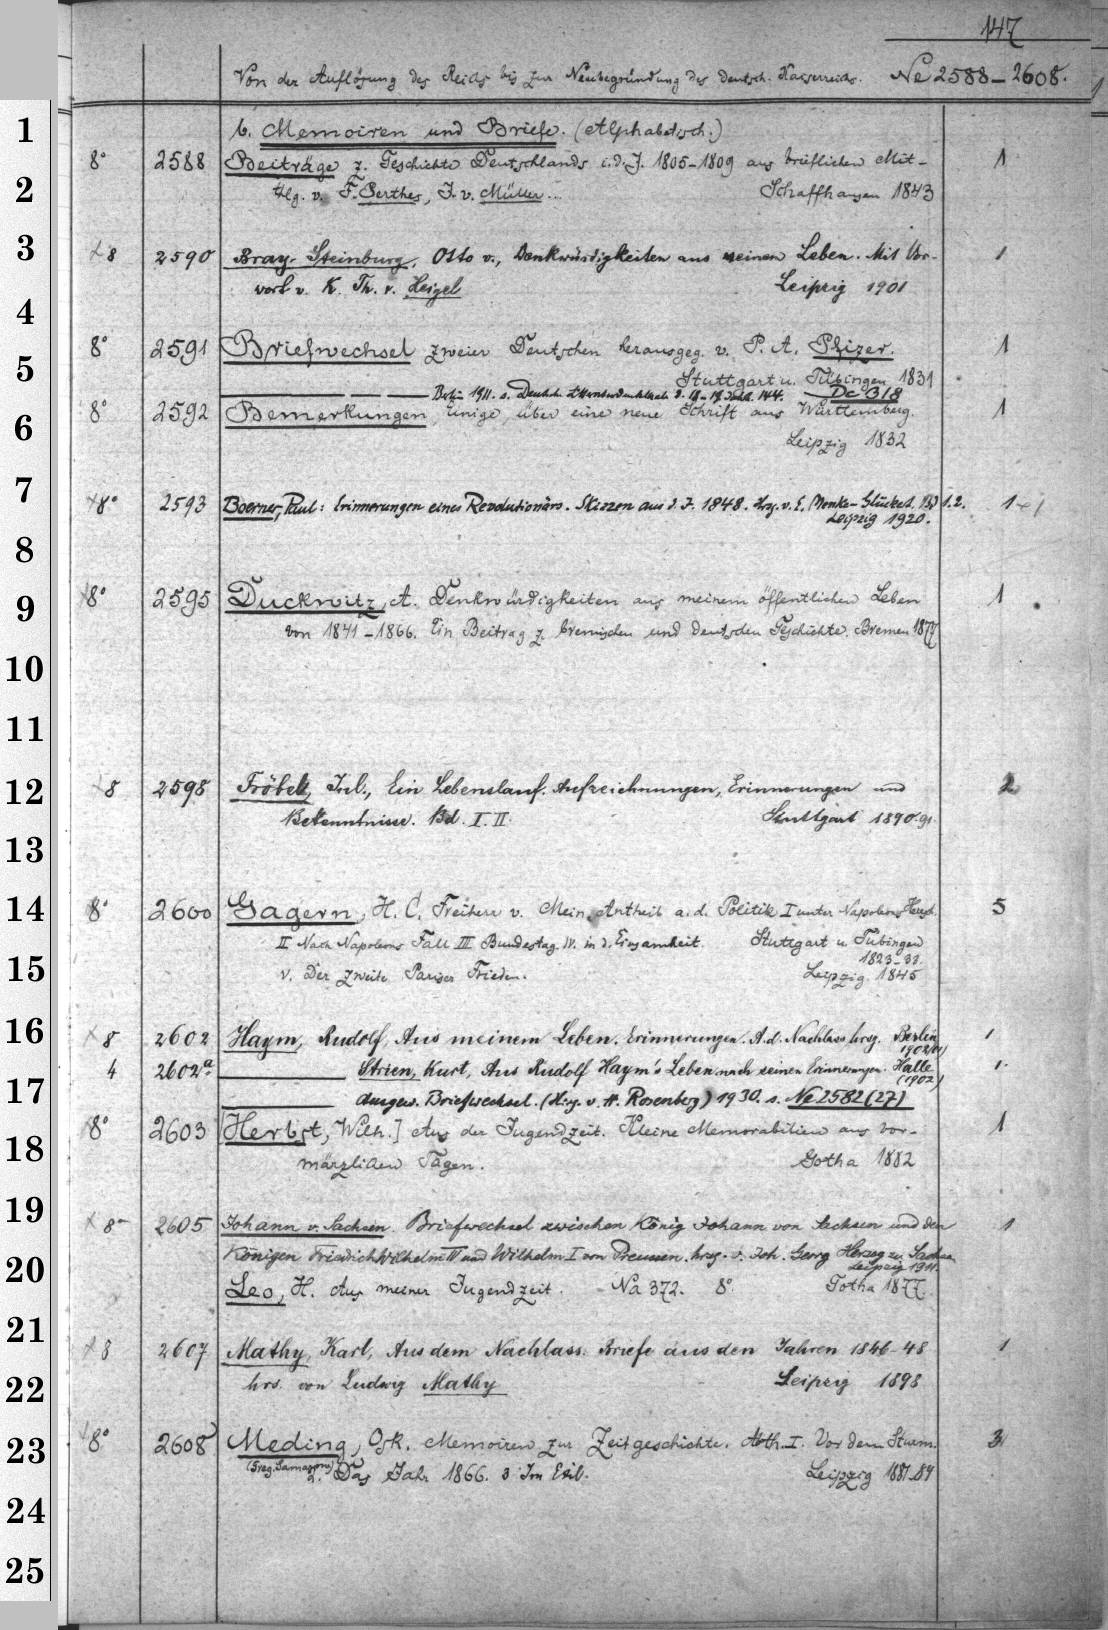 147
Von der Auflösung des Reichs bis zur Neubegründung des deutsch. Kaiserreichs. Ne 2588-2608.
1
b. Memoiren und Briefe. (Alphabetisch.)
8° 2588 Beiträge z. Geschichte Deutschlands i. d. J. 1805-1809 aus brieflichen Mit- 1
2
tlg. v. F. Perthes, J. v. Müller... Schaffhausen 1843
3
×8 2590 Bray-Steinburg, Otto v., Denkwürdigkeiten aus seinem Leben. Mit Vor- 1
wort v. K. Th. v. Heigel Leipzig 1901
4
8° 2591 Briefwechsel zweier Deutschen herausgeg. v. P. A. Pfizer. 1
5
Stuttgart u. Tübingen 1831
Berlin 1911. s. Deutsche Litteraturdenkmale d. 18.-19. Jhdt. 144. Dc 318
8° 2592 Bemerkungen, Einige, über eine neue Schrift aus Württemberg. 1
6
Leipzig 1832
7
×8° 2593 Boerner, Paul: Erinnerungen eines Revolutionärs. Skizzen aus d. J. 1848. Hrg. v. E. Menke-Glückert. Bd 1.2. 1+1
Leipzig 1920.
8
×8° 2595 Duckwitz, A. Denkwürdigkeiten aus meinem öffentlichen Leben 1
9
von 1841-1866. Ein Beitrag z. bremischen und deutschen Geschichte. Bremen 1877
10
11
×8 2598 Fröbel, Jul., Ein Lebenslauf. Aufzeichnungen, Erinnerungen und 2
12
Bekenntnisse. Bd. I. II. Stuttgart 1890.91.
13
8° 2600 Gagern, H. C. Freiherr v. Mein Antheil a. d. Politik I unter Napoleons Herrsch. 5
14
II Nach Napoleons Fall III Bundestag. IV. in d. Einsamkeit. Stuttgart u. Tübingen
1823-33.
15
V. Der zweite Pariser Frieden. Leipzig 1845
16
×8 2602 Haym, Rudolf, Aus meinem Leben. Erinnerungen. A. d. Nachlass hrsg. Berlin 1
1902(01)
4 2602a Strien, Kurt, Aus Rudolf Haym's Leben nach seinen Erinnerungen. Halle 1.
(1902)
17
Ausgew. Briefwechsel. (Hrg. v. H. Rosenberg) 1930. s. Ne 2582(27)
8° 2603 [Herbst, Wilh.] Aus der Jugendzeit. Kleine Memorabilien aus vor- 1
18
märzlichen Tagen. Gotha 1882
19
×8° 2605 Johann v. Sachsen. Briefwechsel zwischen König Johann von Sachsen und den 1
Königen Friedrich Wilhelm IV und Wilhelm I von Preussen. hrsg. v. Joh. Georg Herzog zu Sachsen
Leipzig 1911.
20
Leo, H. Aus meiner Jugendzeit. Na 372. 8°. Gotha 1877.
21
×8 2607 Mathy, Karl, Aus dem Nachlass. Briefe aus den Jahren 1846-48 1
22
hrs. von Ludwig Mathy Leipzig 1898
23
×8° 2608 Meding, Osk. Memoiren zur Zeitgeschichte. Abth. I. Vor dem Sturm. 3
(Greg. Samarow) 2. Das Jahr 1866. 3 Im Exil. Leipzig 1881-84
24
25